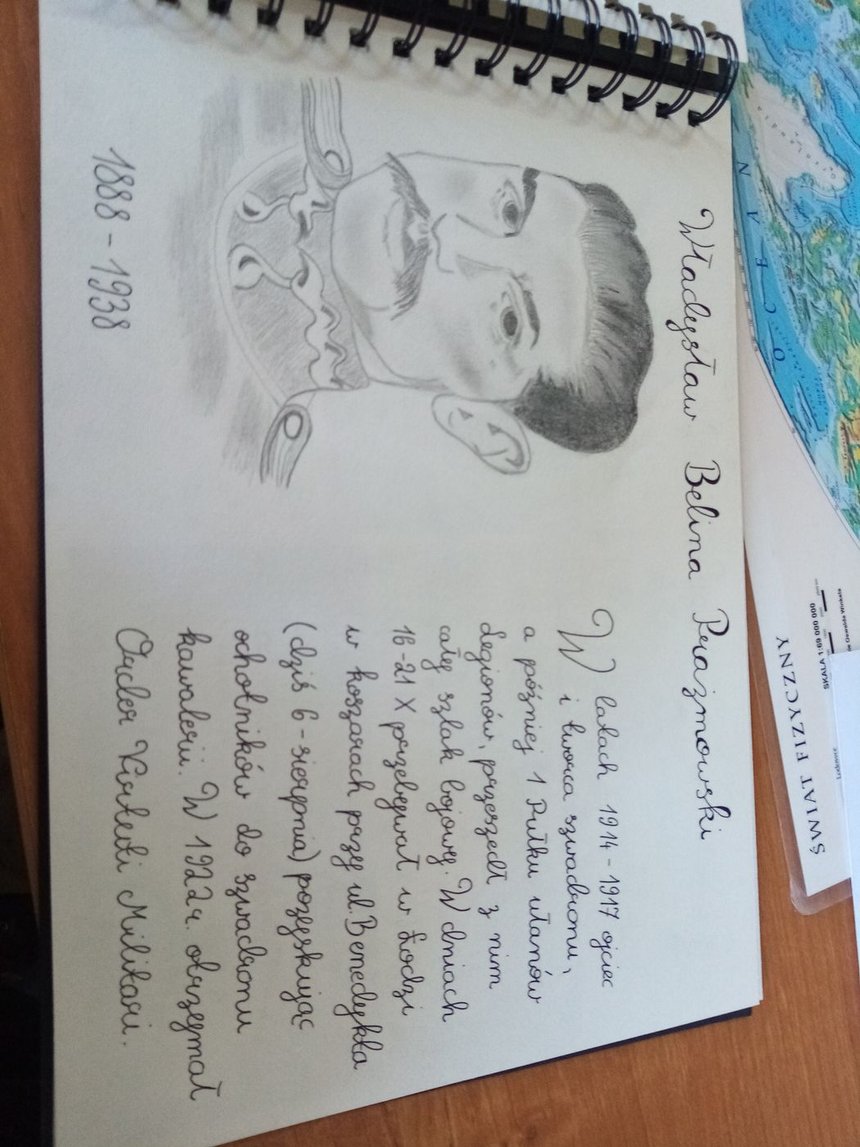 Władysław Belina Prazmowski
W latach 1914-1917 ojciec
i twórca szwadronu,
a później 1 Pułku ułanów
Legionów, przeszedł z nim
cały szlak bojowy. W dniach
18-21 X przebywał w Łodzi
w koszarach przy ul. Benedykta
(dziś 6-sierpnia) pozyskując
ochotników do szwadronu
kawalerii. W 1922 r. otrzymał
Order Virtuti Militari.
1888 - 1938
ŚWIAT FIZYCZNY
SKALA 1:69 000 000
O C E A N